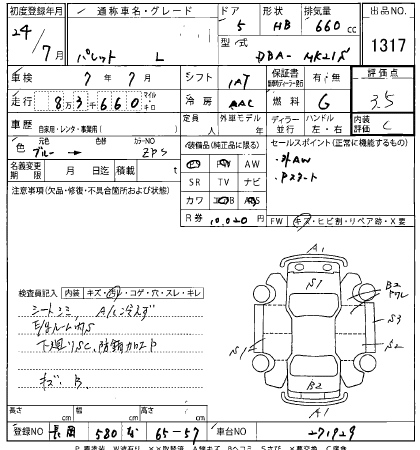 初度登録年月 通称車名・グレード ドア 形状 排気量 出品NO.
24/7月 パレット L 5 HB 660cc 1317
型式 DBA-MK21S
車検 7年7月 シフト IAT 保証書 有・無 評価点 3.5
走行 83660 マイル キロ 冷房 AAC 燃料 G 内装評価 C
車歴 自家用・レンタ・事業用( ) 定員 人 外車モデル 年 ディーラー 並行 ハンドル 左・右
色 元色 ブルー → 色 カラーNO ZPS
名義変更期限 月 日迄 積載 t
<装備品(純正品に限る)>
PS PW AW
SR TV ナビ
カワ エアB ABS
R券 10,020円
セールスポイント(正常に機能するもの)
・外AW
・Pスタート
注意事項(欠品・修復・不具合箇所および状態)
FW キズ・ヒビ割・リペア跡・X要
検査員記入 内装 キズ・汚レ・コゲ・穴・スレ・キレ
シートシミ、A/C冷えず
下廻りSC、防錆加工ア
キズ、B
A1
S1
B2
S3
S2
S1
B2
A1
高さ cm 長さ cm 幅 cm
登録NO 長岡 580 な 65-57 車台NO 271929